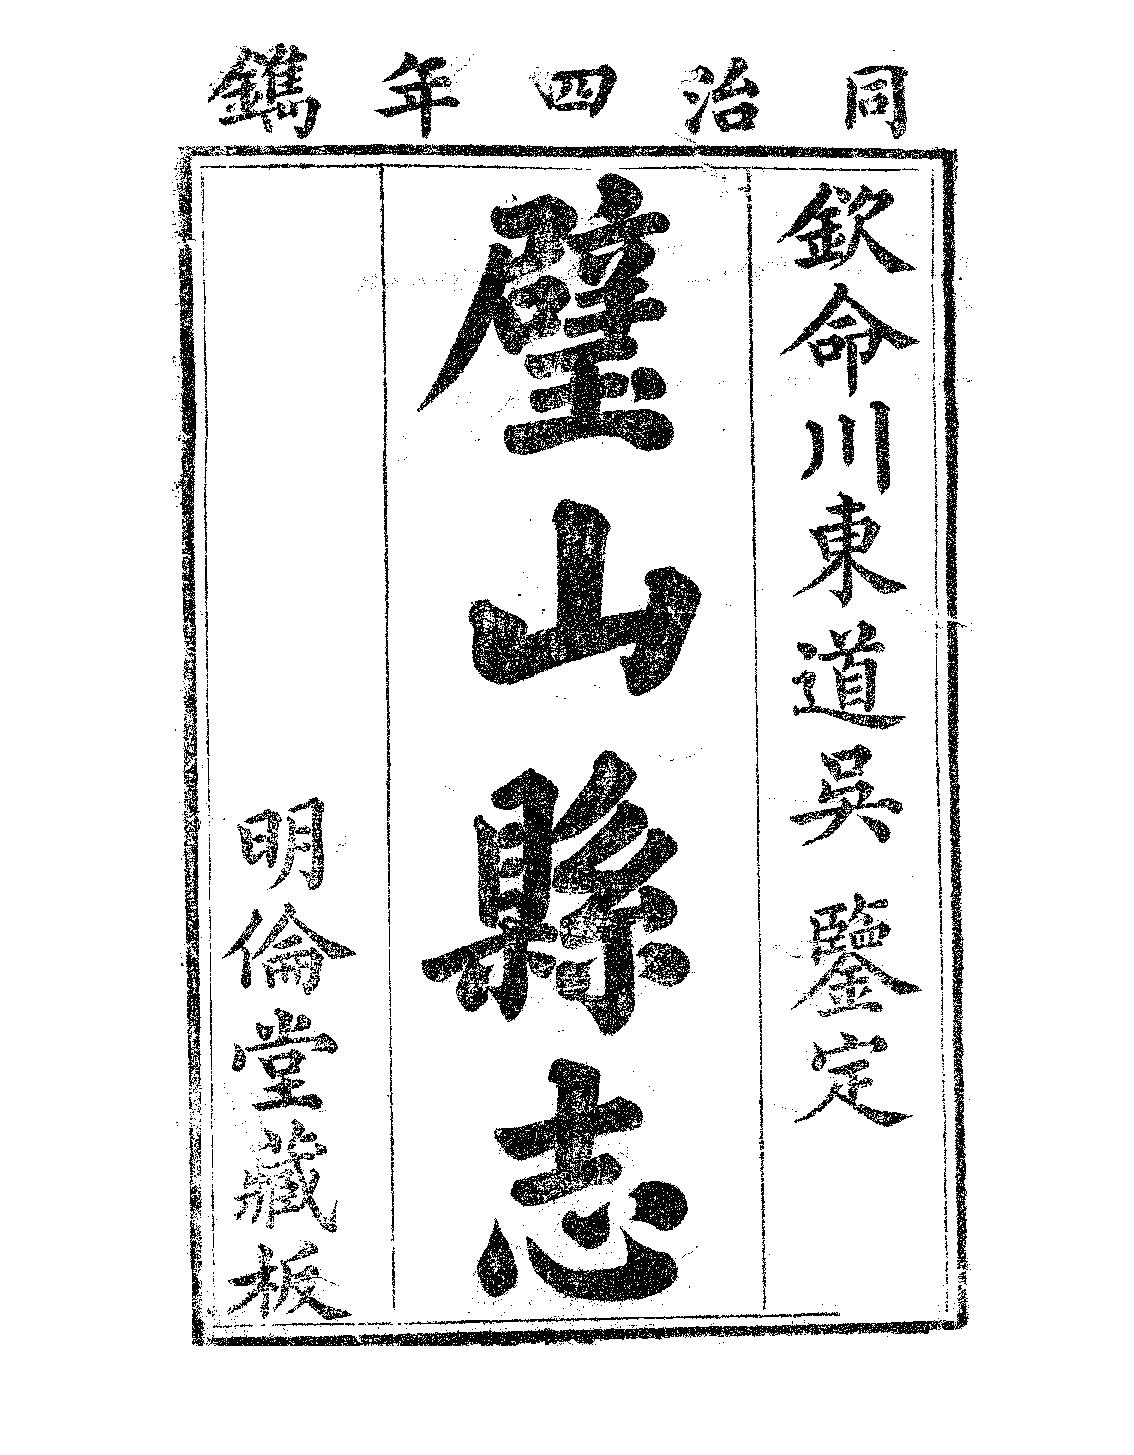 同治四年鐫
欽命川東道吳 鑒定
璧山縣志
明倫堂藏板